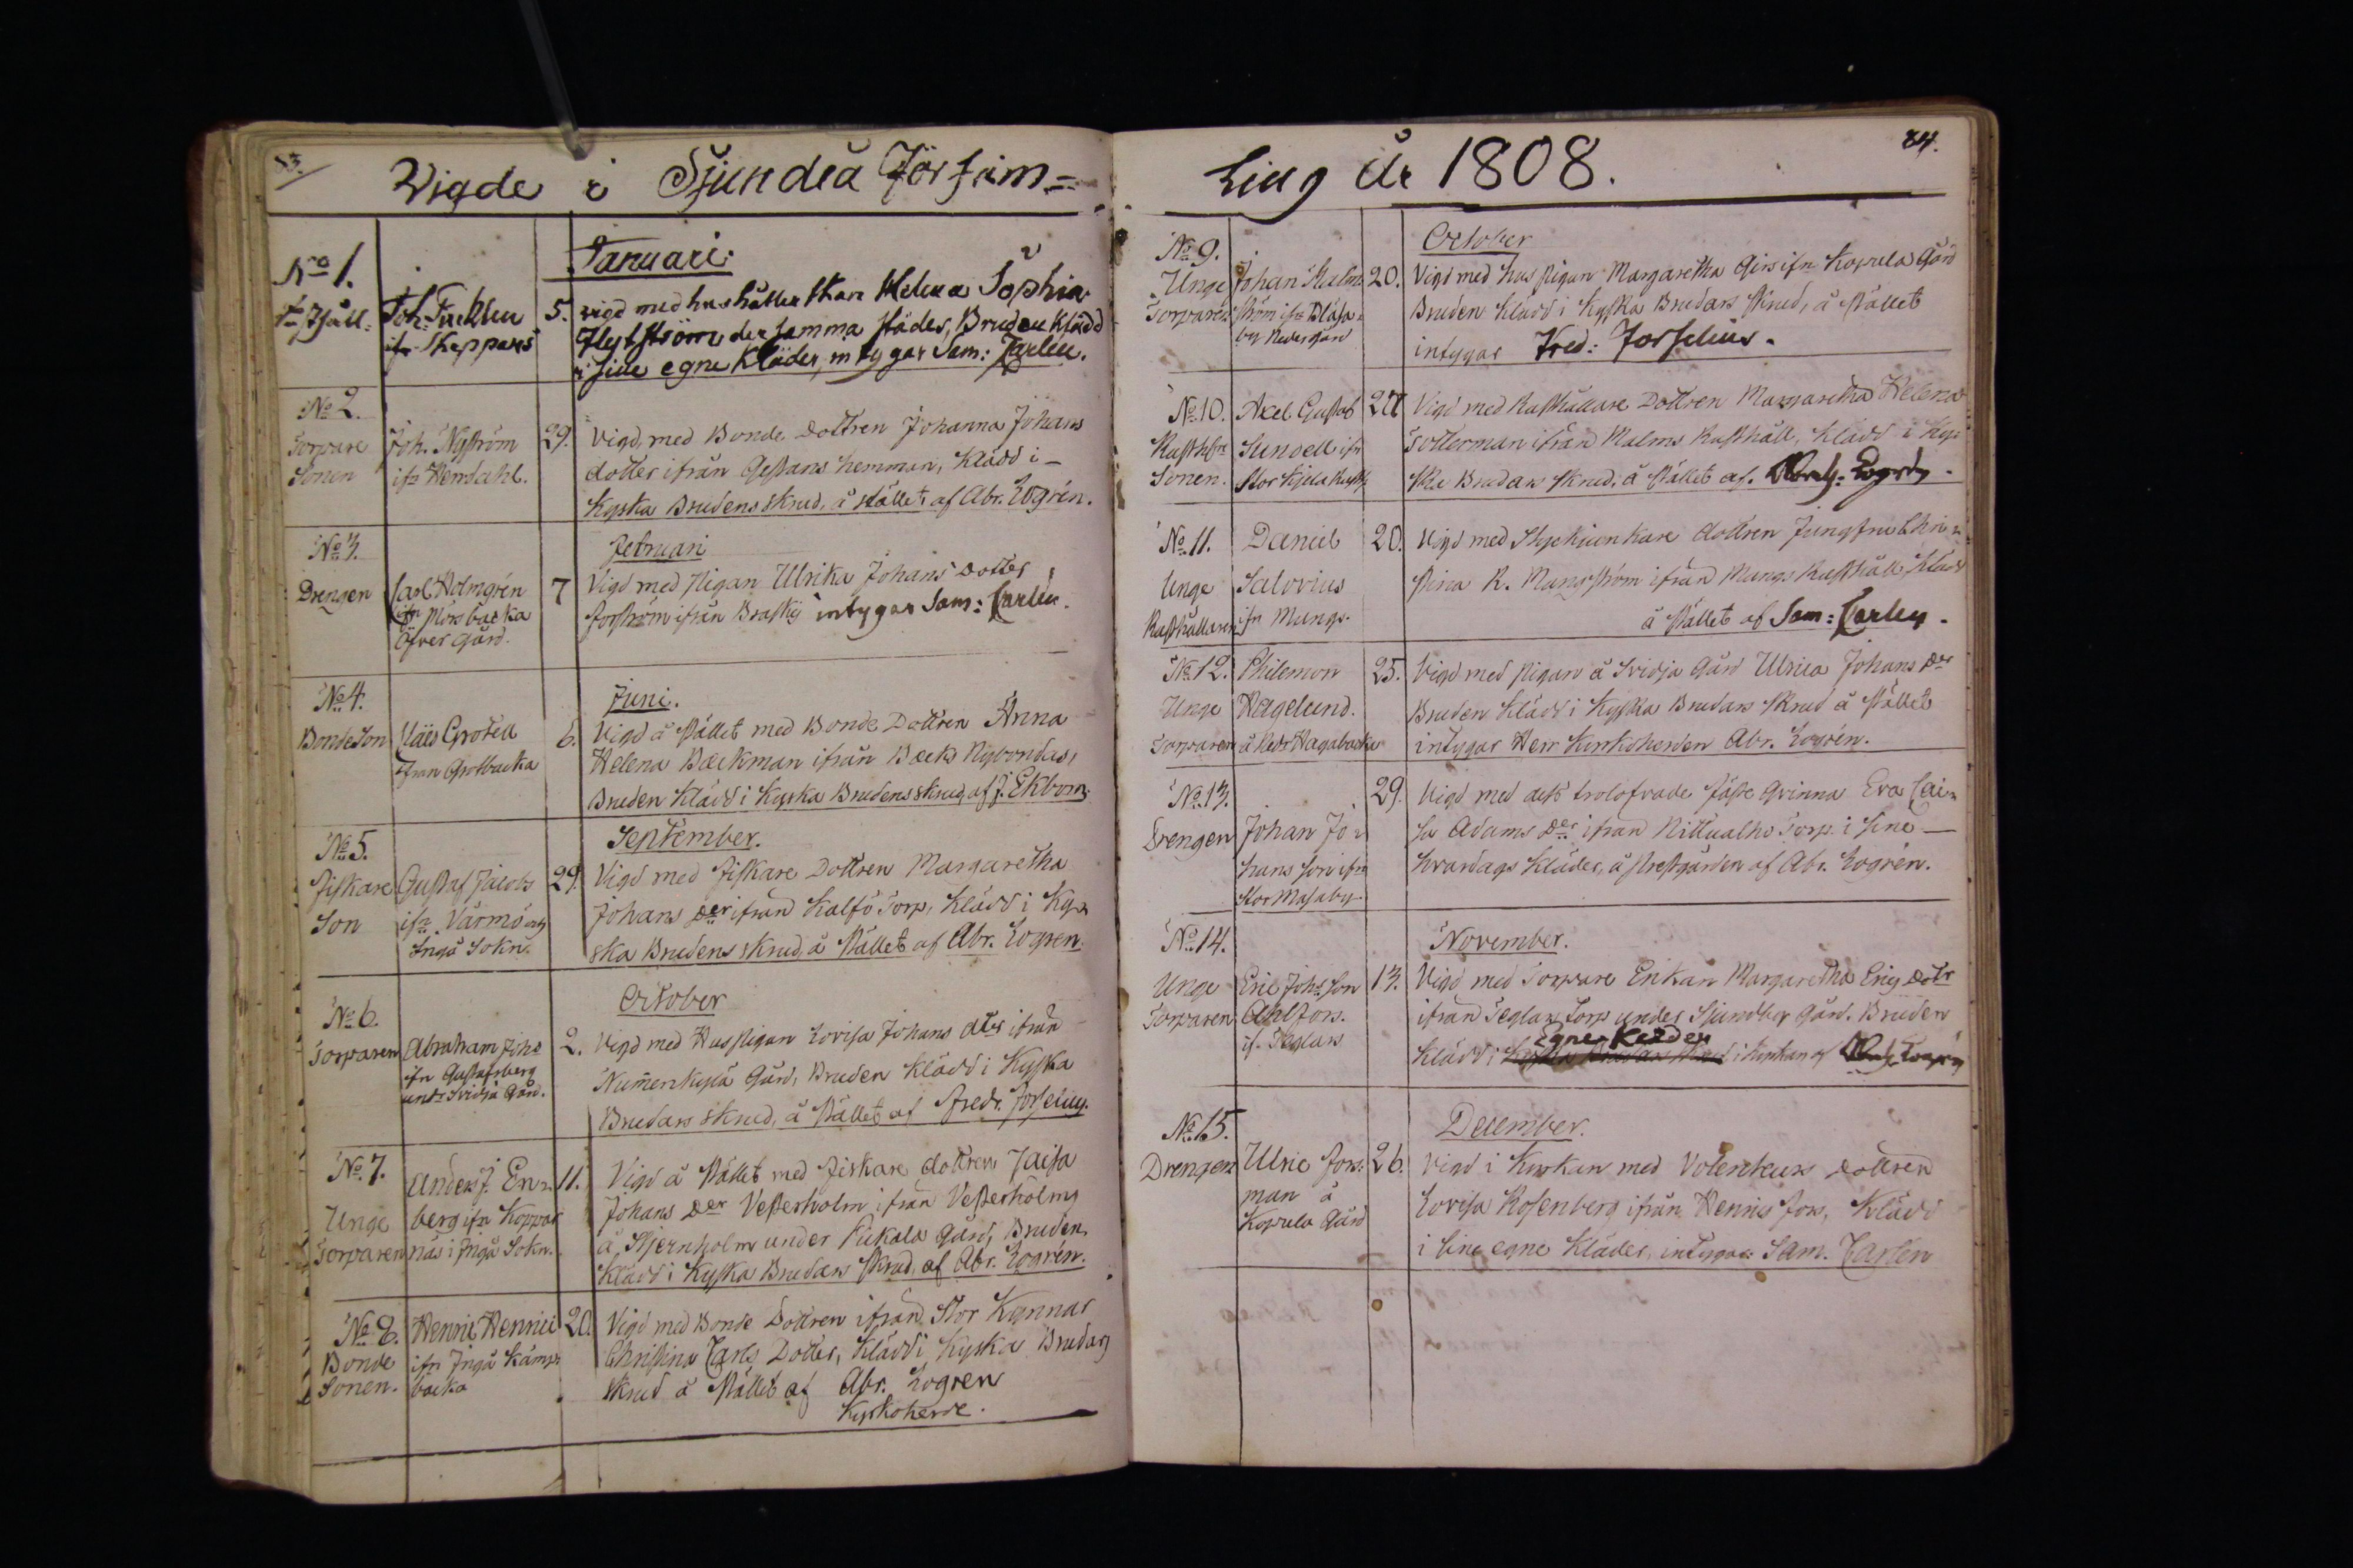 83.
Vigde i Sjundeå Församling
No 1.
Januari.
Joh:
5. vigd med hushållerskan Helena Sophia
ifr Skeppars
Flytström der samma städes, Bruden Klädd
i sine egne Kläder, intygar Sam: Carlén.
No 2.
Torpare Joh. Nyström 29. Vigd, med Bonde Dottren Johanna Johans
Sonen ifr
dotter ifrån Gestans hemman, Klädd i
Kyska Brudens skrud, å stället af Abr. Logrén.
No 3.
Februari
Drengen Carl Holmgrén 7 Vigd med pigan Ulrika Johans dotter
ifr Mörsbacka
Forström ifrån intygar Sam: Carlén.
Öfver gård.
No 4.
Juni.
Bonde Son Grotell 6. Vigd å stället med Bonde Dottren Anna
från Grotbacka
Helena Bæckman ifrån Bæcks Nybondas,
Bruden Klädd i Kyska Brudens skrud, af J. Ekbom.
No 5.
September.
Fiskare Gustaf Jacobs 29. Vigd med Fiskare Dottren Margaretha
Son ifr Värmö
Johans Der ifrån Kalfö Torp, Klädd i Ky=
Ingå Sokn.
ska Brudens skrud, å stället af Abr. Logren.
No 6.
October
Torparen Abraham Johs 2. Vigd med Huspigan Lovisa Johans dtr ifrån
ifr Gustafsberg
Numenkylä Gård, Bruden klädd i Kyska
undr Svidja Gård.
Brudars skrud, å stället af Fredr. Forselius.
No 7.
Anders J. En= 11. Vigd å stället med Fiskare dottren Caisa
Unge berg ifr Koppar
Johans Der Vesterholm ifrån Vesterholms
Torparen näs i Ingå Sokn.
å Stjernholm under Pickala gård, Bruden
klädd i Kyska Brudars skrud, af Abr. Logrén.
No 8. Henric Henrici 20. Vigd med Bonde Dottren ifrån Stor Kynnar
Bonde ifr Ingå Kämp=
Christina Carls Dotter, Klädd i Kyska Brudars
Sonen. backa
skrud å stället af Abr. Logren
Kyrkoherde.
84.
ling År 1808.
No 9.
October
Unge Johan Malm= 20. Vigd med huspigan Margaretha Girs ifr Kopula Gård
Torparen ström ifr Blåsa=
Bruden klädd i Kyska Brudars skrud, å stället
by Neder gård
intygar Fred: Forselius.
No 10. Axel Gustaf 27 Vigd med Rusthållare Dottren Margaretha Helena
Rusthålre Sundell ifr
Totterman ifrån Malms Rusthåll, klädd i Ky=
Sonen. Stor Kyla Rusth
ske Brudars skrud, å stället af. Abrah: Logrén.
No 11. Daniel 20. Vigd med dottren Jungfru Chri=
Unge Salovius
stina R. Mungström ifrån Mungs Rusthåll, klädd
Rusthållaren ifr Mungs.
å stället af Sam: Carlén.
No 12. Philemon 25. Vigd med pigan å Svidja Gård Ulrica Johans Der
Unge Hagelund.
Bruden klädd i Kyska Brudars skrud å stället
Torparen å Nedr Hagabacka
intygar Herr Kyrkoherden Abr. Logrén.
No 13.
29. Vigd med dess trolofvade fäste qvinna Eva Cai=
Drengen Johan Jo=
sa Adams Der ifrån Torp. i sine
hans son ifr
hvardags kläder, å prestgården af Abr. Logrén.
Stor Masaby.
No 14.
November.
Unge Eric Johs Son 13. Vigd med Torpare Enkan Margaretha Erics Dotr
Torparen Ahlfors.
ifrån Teglars Torp under Sjundby Gård. Bruden
if. Teglars
Egne Kläder
klädd i Kyska Brudars skrud i Kyrkan af Abrah. Logrén
No 15.
December.
Drengen Ulric Fors= 26. Vigd i Kyrkan med Volenteurs Dottren
man å
Lovisa Rosenberg ifrån Hennis Fors, Klädd
Kopula Gård
i sine egne kläder, intygar Sam. Carlén